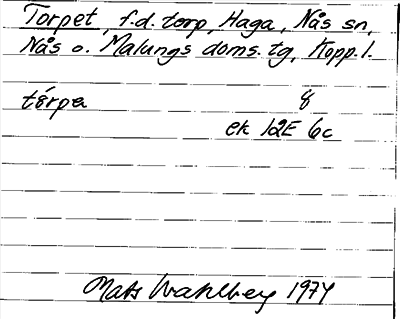 Torpet, f.d. torp, Haga, Nås sn,
Nås o. Malungs doms. tg, Kopp. l.
tórpa 8
ek 12E 6c
Mats Wahlberg 1974